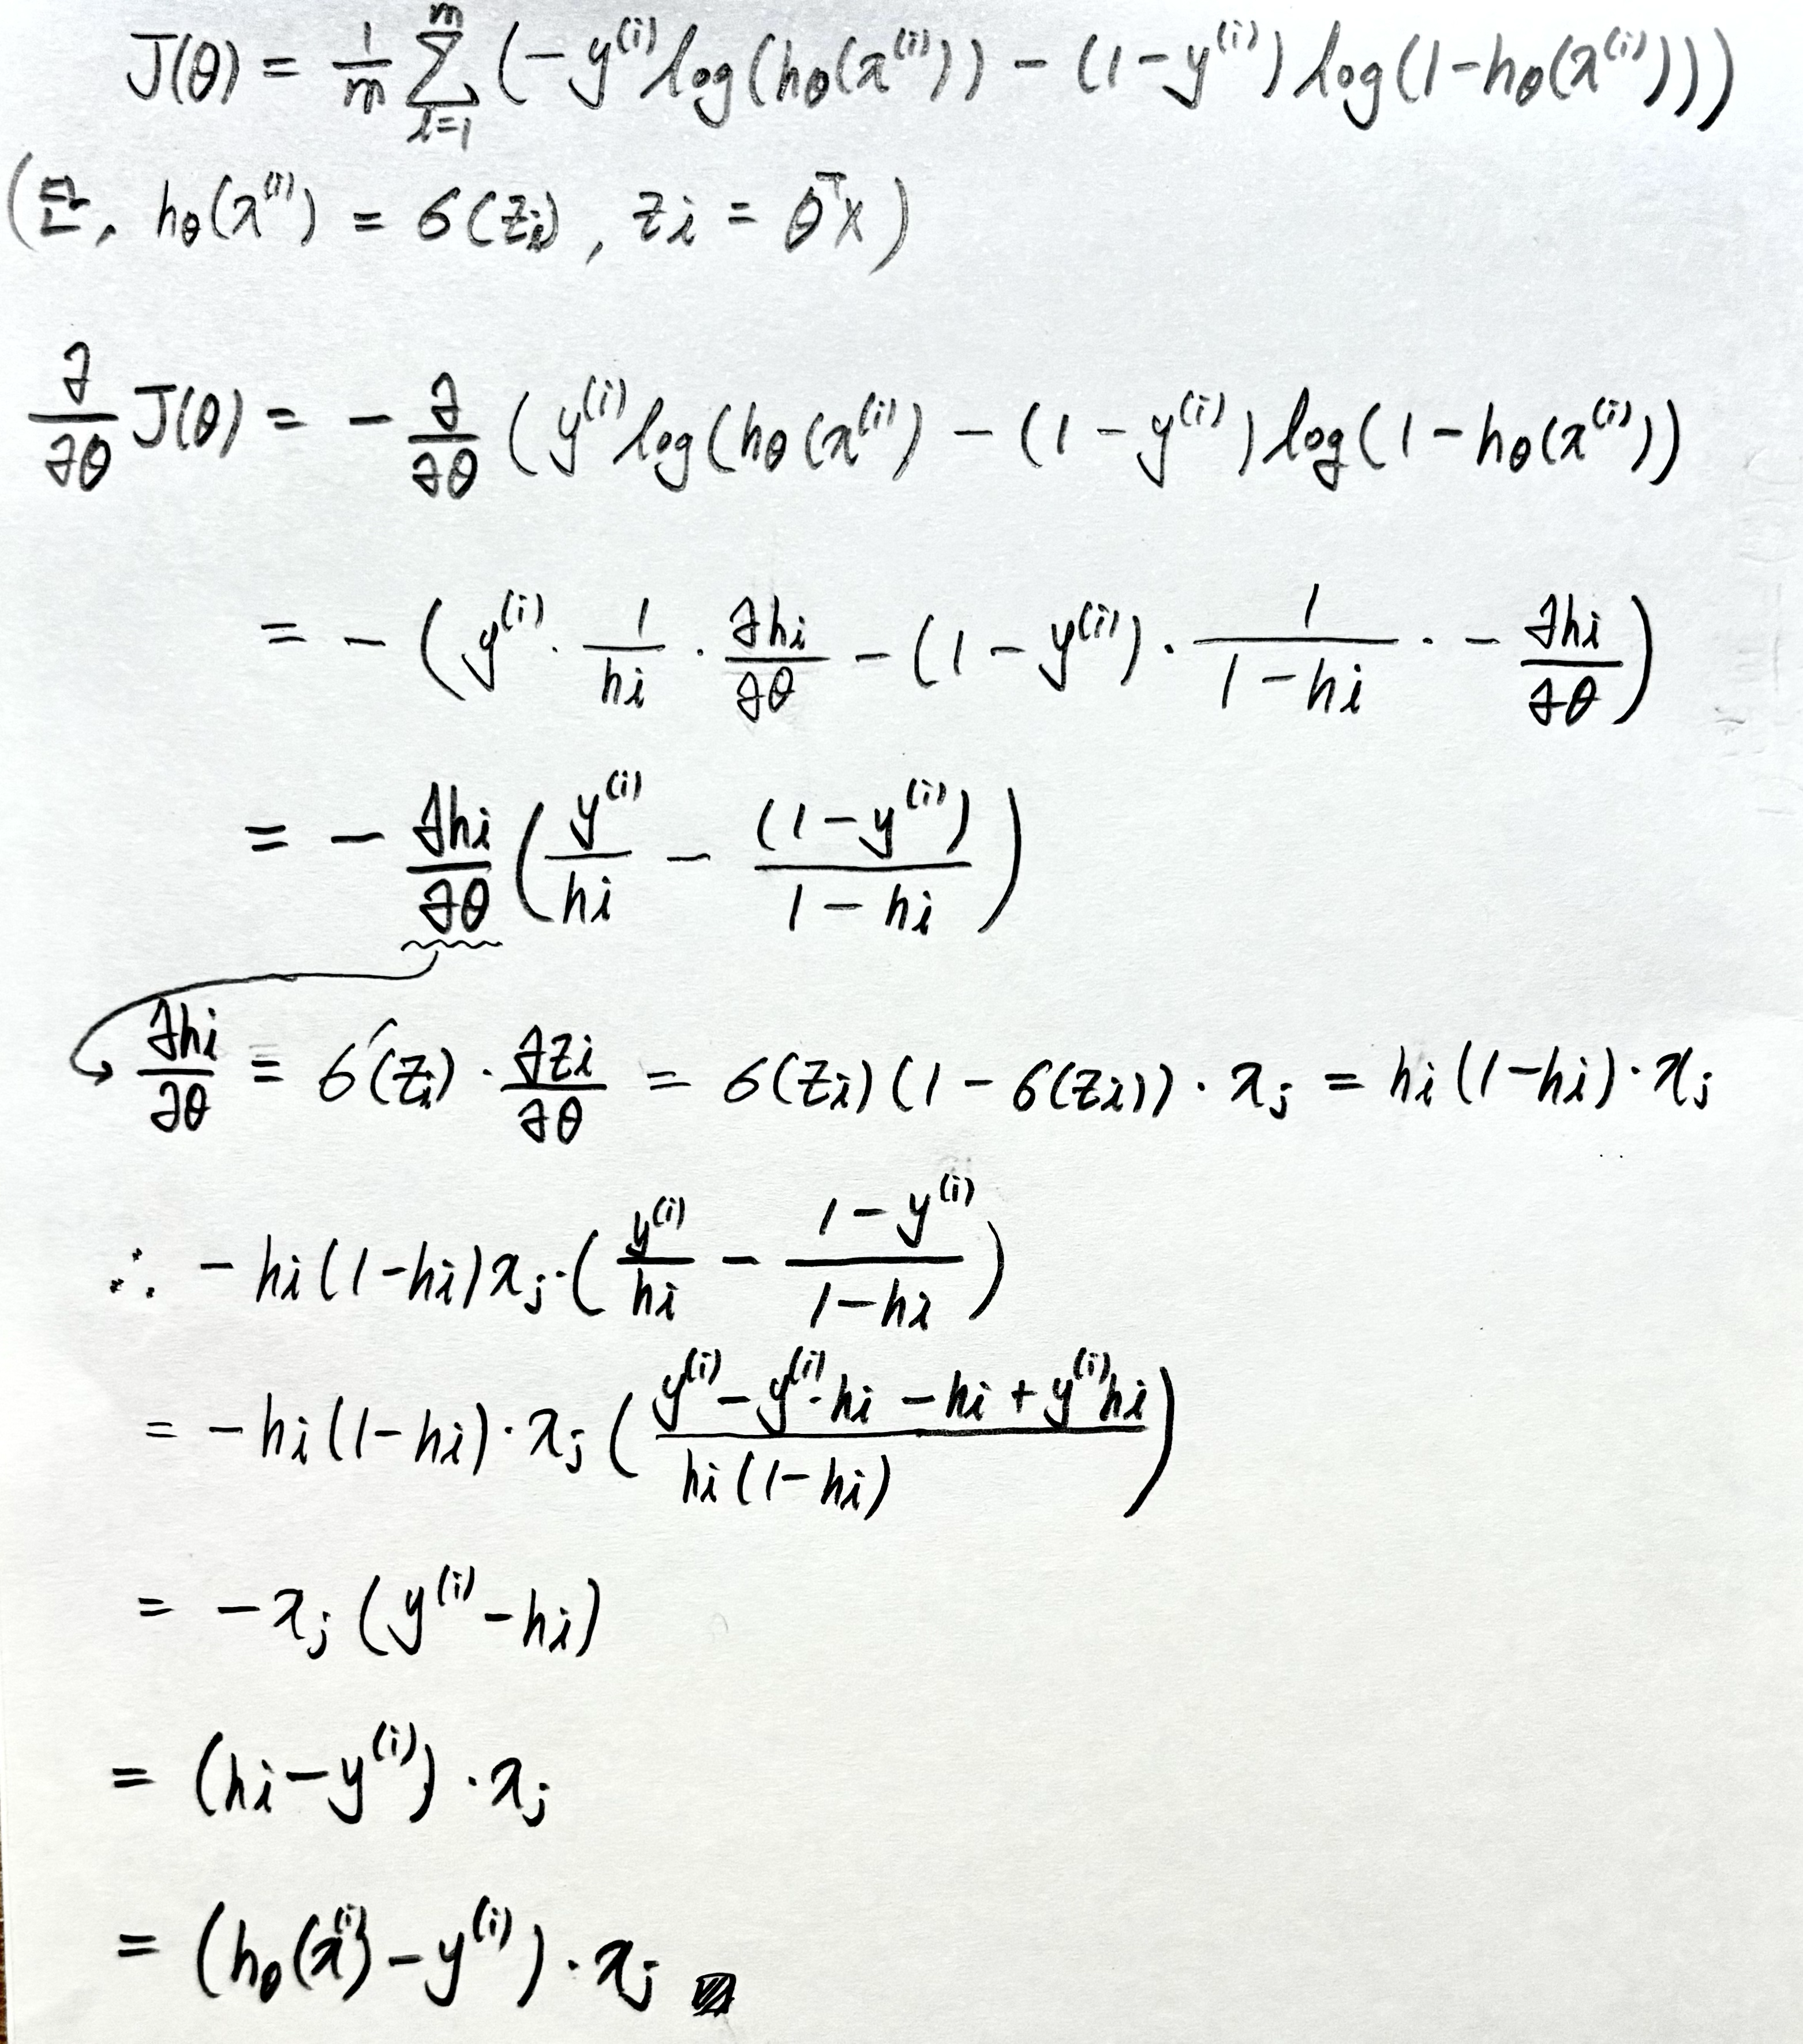 J(θ) = 1/m Σ_{i=1}^{m} (−y⁽ⁱ⁾log(hθ(x⁽ⁱ⁾)) − (1−y⁽ⁱ⁾)log(1−hθ(x⁽ⁱ⁾)))
(단, hθ(x⁽ⁱ⁾) = σ(zi), zi = θᵀx)
∂/∂θ J(θ) = − ∂/∂θ (y⁽ⁱ⁾log(hθ(x⁽ⁱ⁾) − (1−y⁽ⁱ⁾)log(1−hθ(x⁽ⁱ⁾))
= − (y⁽ⁱ⁾ · 1/hi · ∂hi/∂θ − (1−y⁽ⁱ⁾) · 1/(1−hi) · − ∂hi/∂θ)
= − ∂hi/∂θ (y⁽ⁱ⁾/hi − (1−y⁽ⁱ⁾)/(1−hi))
∂hi/∂θ = σ′(zi) · ∂zi/∂θ = σ(zi)(1−σ(zi)) · xj = hi(1−hi) · xj
∴ −hi(1−hi)xj · (y⁽ⁱ⁾/hi − (1−y⁽ⁱ⁾)/(1−hi))
= −hi(1−hi) · xj ((y⁽ⁱ⁾ − y⁽ⁱ⁾·hi − hi + y⁽ⁱ⁾hi)/(hi(1−hi)))
= −xj (y⁽ⁱ⁾−hi)
= (hi−y⁽ⁱ⁾) · xj
= (hθ(x⁽ⁱ⁾) − y⁽ⁱ⁾) · xj